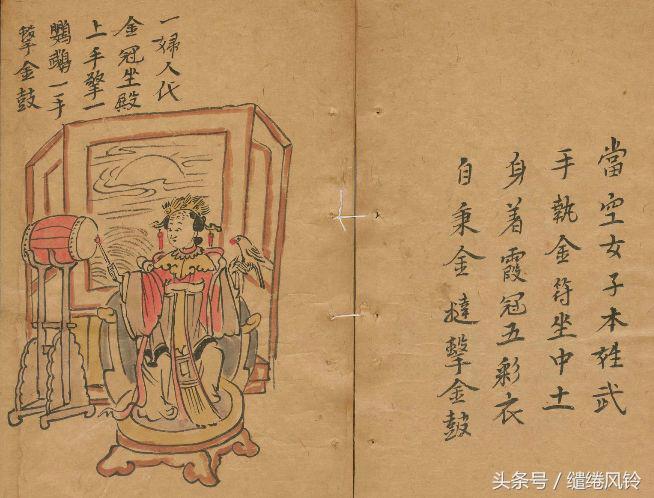 當空女子本姓武
手執金符坐中土
身着霞冠五彩衣
自秉金撻擊金鼓
一婦人代
金冠坐殿
上手擎一
鸚鵡一手
擊金鼓
头条号 / 缱绻风铃